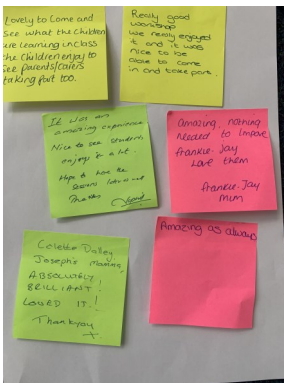 Lovely to Come and
see what the Children
are learning in class
the Children enjoy to
see parents/carers
taking part too.
Really good
workshop
we really enjoyed
it and it was
nice to be
able to come
in and take part.
It was an
amazing experience
Nice to see students
enjoys it a lot.
Hope to have the
sessions later
Thanks
Amazing, nothing
needed to improve
Frankie-Jay
Love them
Frankie-Jay
Mum
Colette Dalley
Joseph's Mammy,
ABSOLUTELY
BRILLIANT!
LOVED IT!
Thankyou
x
Amazing as always